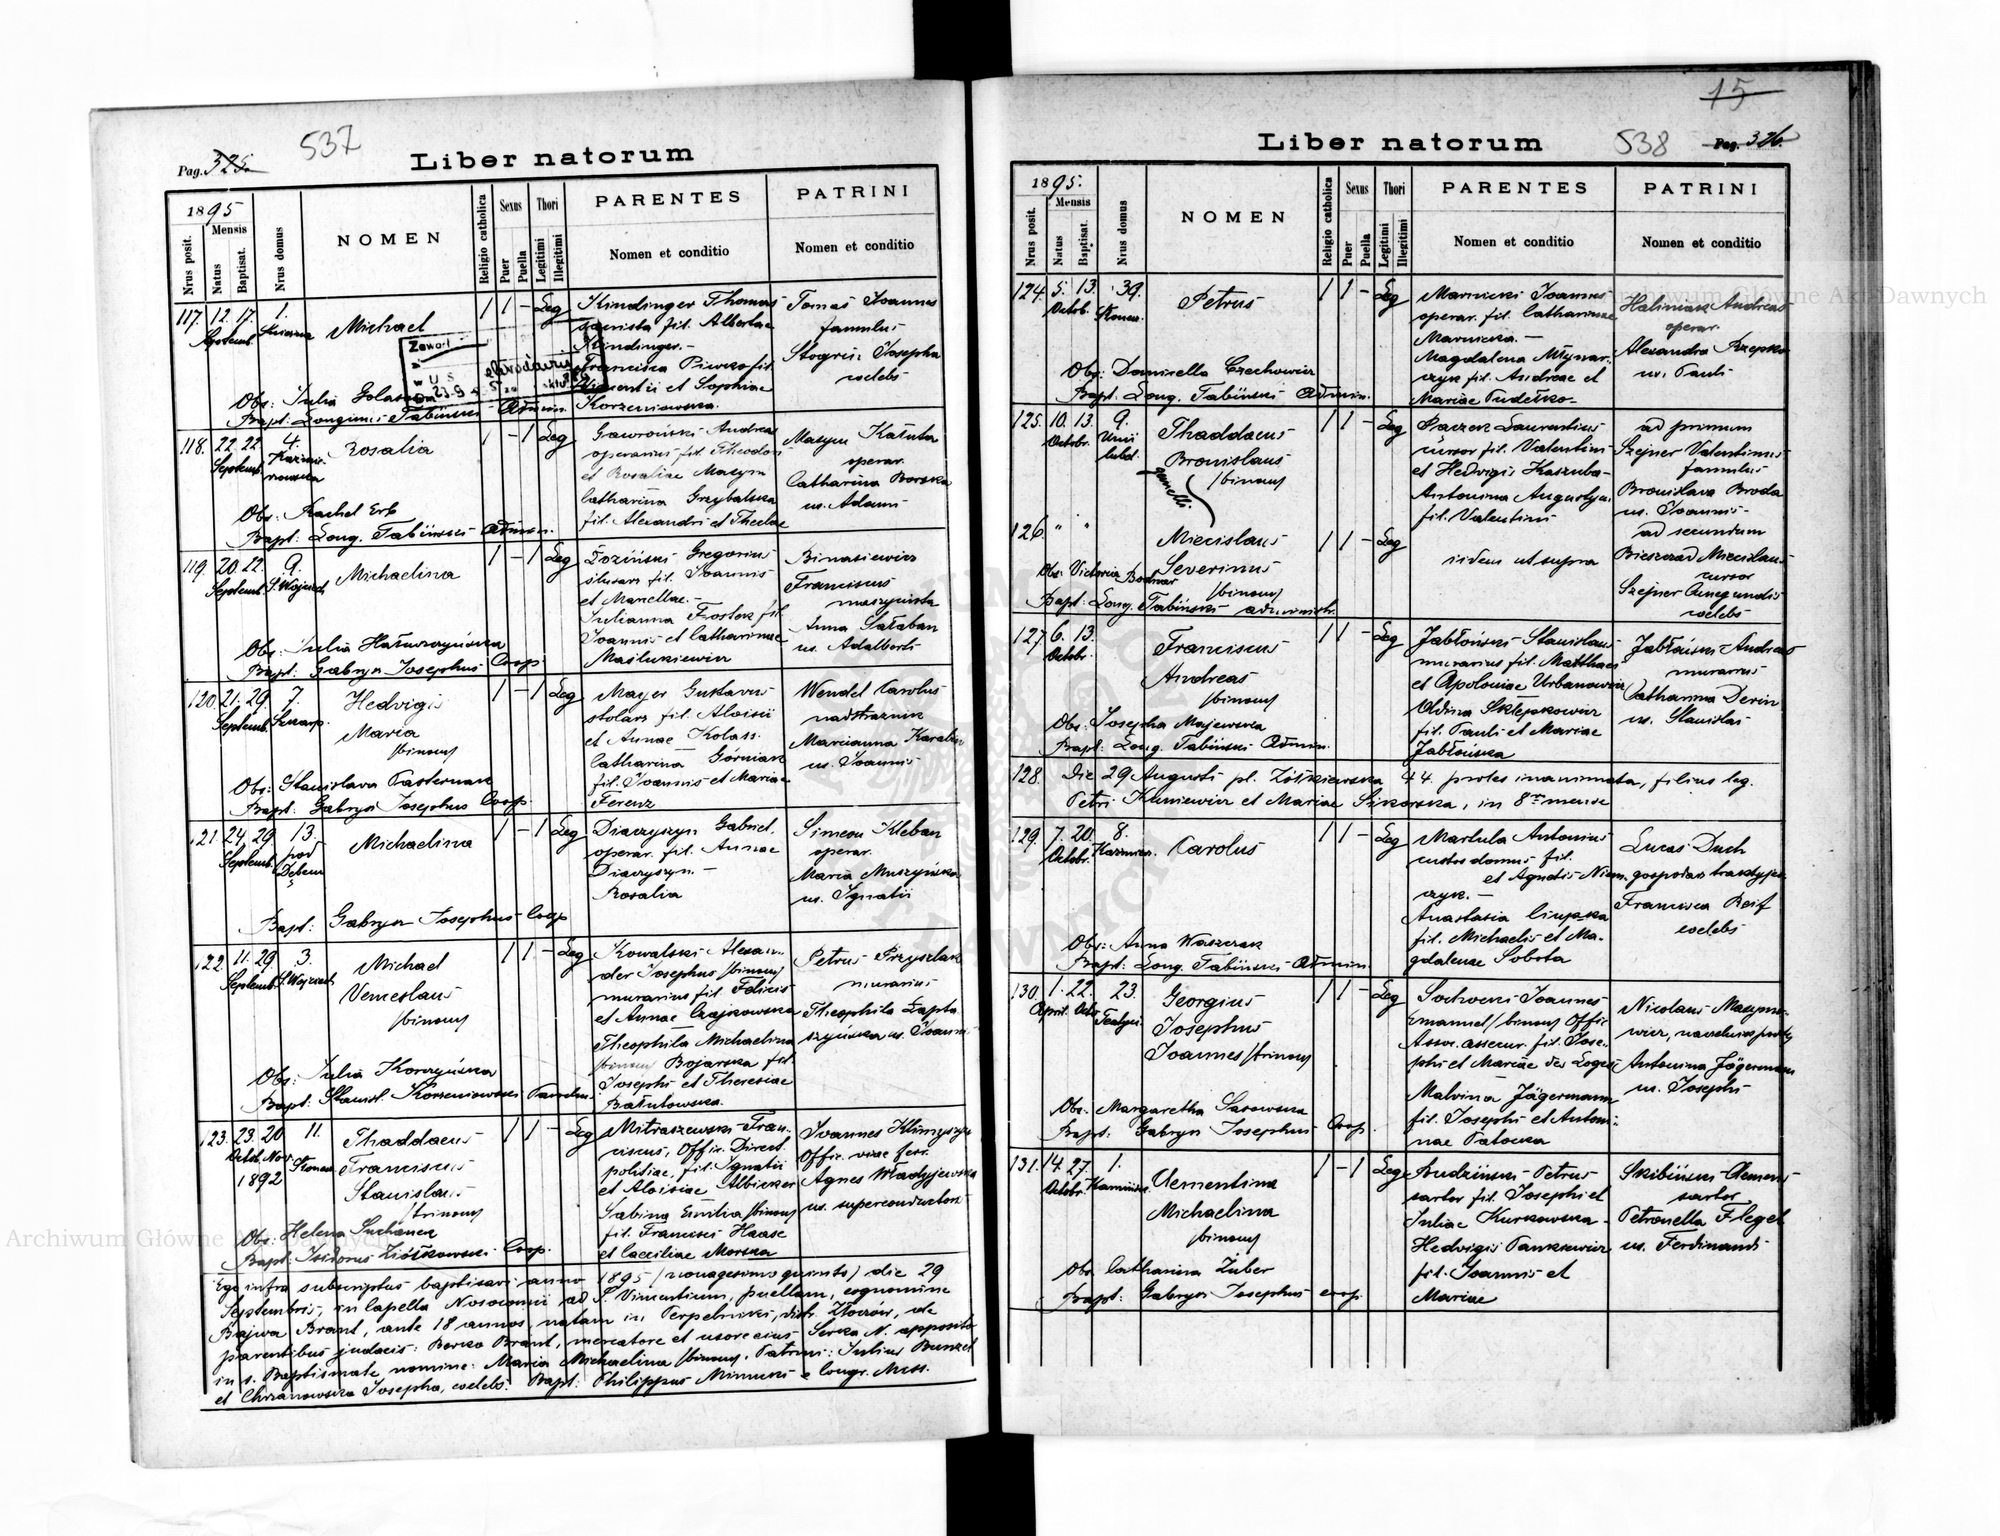 537
Pag. 325.
Liber natorum
1895
Mensis
Nrus posit.
Natus
Baptisat.
Nrus domus
NOMEN
Religio catholica
Sexus
Puer
Puella
Thori
Legitimi
Illegitimi
PARENTES
Nomen et conditio
PATRINI
Nomen et conditio
117. 12. 17. 1.
Septemb.
Michael
1 1 - Leg
Kindinger Thomas
fil. Albertae
Kindinger. -
Francisca
Vincentii et Sophiae
Korzeniowska.
Tomas Joannes
famulus
Josepha
coelebs
Zawarł
Obs: Julia
Bapt: Longinus Tabiński Admin.
118. 22. 22 4.
Septemb.
Rosalia
1 - 1 Leg
Gawroński Andreas
operarius fil. Theodori
et Rosaliae Masym
Catharina Grzybalska
fil. Alexandri et Theclae
Masym
operar.
Catharina Borska
ux. Adami
Obs: Rachel Erb
Bapt: Long. Tabiński Admin.
119. 20. 22. 9.
Septemb. S. Wojciech
Michaelina
1 - 1 Leg
Łoziński Gregorius
ślusarz fil. Joannis
et Marcellae. -
Julianna Froster fil.
Joannis et Catharinae
Maślukiewicz
Binasiewicz
Franciscus
maszynista
Anna Sałaban
ux. Adalberti
Obs: Julia
Bapt: Gabryś Josephus Coop
120. 21. 29. 7.
Septemb.
Hedvigis
Maria
/binom/
1 - 1 Leg
Mayer Gustavus
stolarz fil. Aloisii
et Annae Kolass.
Catharina Górniak
fil. Joannis et Mariae
Ferenz
Wendel Carolus
nadstrażnik
Marcianna
ux. Joannis
Obs: Stanislava Pasternak
Bapt: Gabryś Josephus Coop.
121. 24. 29 13.
Septemb. pod
Dębem
Michaelina
1 - 1 Leg
Diaczyszyn Gabriel.
operar. fil. Annae
Diaczyszyn. -
Rosalia
Simeon Kleban
operar.
Maria Muszyńska
ux. Ignatii
Bapt: Gabryś Josephus Coop
122. 11. 29 3.
Septemb. S. Wojciech
Michael
Venceslaus
/binom/
1 1 - Leg
Kowalski Alexan-
der Josephus /binom/
murarius fil. Felicis
et Annae Czajkowska
Theophila Michaelina
/binom/ Bojarska fil.
Josephi et Theresiae
Bałutowska.
Petrus Przyszlak
murarius
Theophila Łapta
szyńska ux. Joannis
Obs: Julia Korczyńska
Bapt: Stanisl. Korzeniowski
123. 23. 20 11.
Octob. Nov.
1892
Thaddaeus
Franciscus
Stanislaus
/trinom/
1 1 - Leg
Mitraszewski Fran-
ciscus, Offic. Direct.
politiae, fil. Ignatii
et Aloisiae Albicker
Sabina Emilia /binom/
fil. Francisci Haase
et Caeciliae Morska
Joannes
Offic. viae ferr.
Agnes
ux. superconductoris
Obs: Helena Suchanek
Bapt: Isidorus Ziółkowski Coop.
Ego infra subscriptus baptisavi anno 1895 /nonagesimo quinto/ die 29
Septembris, in Capella Nosocomii ad S. Vincentium, puellam, cognomine
Bajwa Brant, ante 18 annos, natam in Perpelniki, distr. Złoczów, de
parentibus judaeis: Berko Brant, mercatore et uxore eius Serka N. apposito
in s. Baptismate nomine: Maria Michaelina /binom/. Patrini: Julius Bunzel
et Chrzanowska Josepha, coelebs. Bapt: Philippus e Congr. Miss.
15
Liber natorum
538
Pag. 326.
1895.
Mensis
Nrus posit.
Natus
Baptisat.
Nrus domus
NOMEN
Religio catholica
Sexus
Puer
Puella
Thori
Legitimi
Illegitimi
PARENTES
Nomen et conditio
PATRINI
Nomen et conditio
124. 5. 13. 39.
Octob.
Petrus
1 1 - Leg
Marnicki Joannes
operar. fil. Catharinae
Marnicka. -
Magdalena Młynar-
czyk fil. Andreae et
Mariae
Andreas
operar.
Alexandra Rzepka
ux. Pauli
Obs: Domicella Czechowicz
Bapt: Long. Tabiński Admin.
125. 10. 13. 9.
Octobr. Unii
lubel.
Thaddaeus
Bronislaus
/binom/
gemelli.
1 1 - Leg
Paczek Laurentius
cursor fil. Valentini
et Hedvigis Kaszuba -
Antonina Augustyn
fil. Valentini
ad primum
Szejner Valentinus
famulus
Bronislava Broda
ux. Joannis -
126. " "
Miecislaus
Severinus
/binom/
1 1 - Leg
iidem ut supra
ad secundum
Bieszczad Miecislaus
cursor
Szejner Cunegundis
coelebs
Obs: Victoria Bodnar
Bapt: Long. Tabiński administr.
127 6. 13.
Octobr.
Franciscus
Andreas
/binom/
1 1 - Leg
Jabłoński Stanislaus
murarius fil. Matthaei
et Apoloniae Urbanowicz
fil. Pauli et Mariae
Jabłońska
Jabłoński Andreas
murarius
Catharina Derin
ux. Stanislai
Obs: Josepha Majewska
Bapt: Long. Tabiński Admin.
128. Die 29 Augusti pl. Żółkiewska 44. proles inanimata, filius leg.
Petri et Mariae Sikorska, in 8vo mense
129. 7. 20. 8.
Octobr.
Carolus
1 1 - Leg
Martula Antonius
custos domus fil.
et Agnetis Niem-
czyk. -
Anastasia
fil. Michaelis et Ma-
gdalenae Sobota
Lucas Duch
gospodarz
Francisca Reif
coelebs
Obs: Anna Waszczak
Bapt: Long. Tabiński Admin.
130. 1. 22. 23.
April. Octr.
Georgius
Josephus
Joannes /trinom/
1 1 - Leg
Sochocki Joannes
Emanuel /binom/ Offic.
Assoc. assecur. fil. Jose-
phi et Mariae de Loges
Malvina Jägermann
fil. Josephi et Antoni-
nae Patocka
Nicolaus
Antonina Jägermann
ux. Josephi
Obs: Margaretha Sarowska
Bapt: Gabryś Josephus Coop.
131. 14. 27. 1.
Octobr.
Clementina
Michaelina
/binom/
1 - 1 Leg
Budziński Petrus
sartor fil. Josephi et
Juliae Kurkowska -
Hedvigis Pankiewicz
fil. Joannis et
Mariae
Skibiński Clemens
sartor
Petronella Flegel
ux. Ferdinandi
Obs. Catharina Zuber
Bapt: Gabryś Josephus coop.
Archiwum Główne Akt Dawnych
Archiwum Główne Akt Dawnych